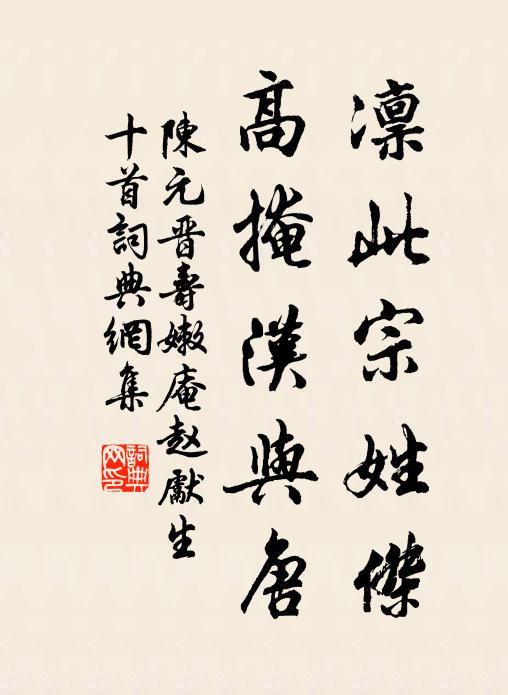 凛此宗姓傑
高掩漢與唐
陳元晋壽嫩庵赵獻生
十首詞典網集
詞典網印